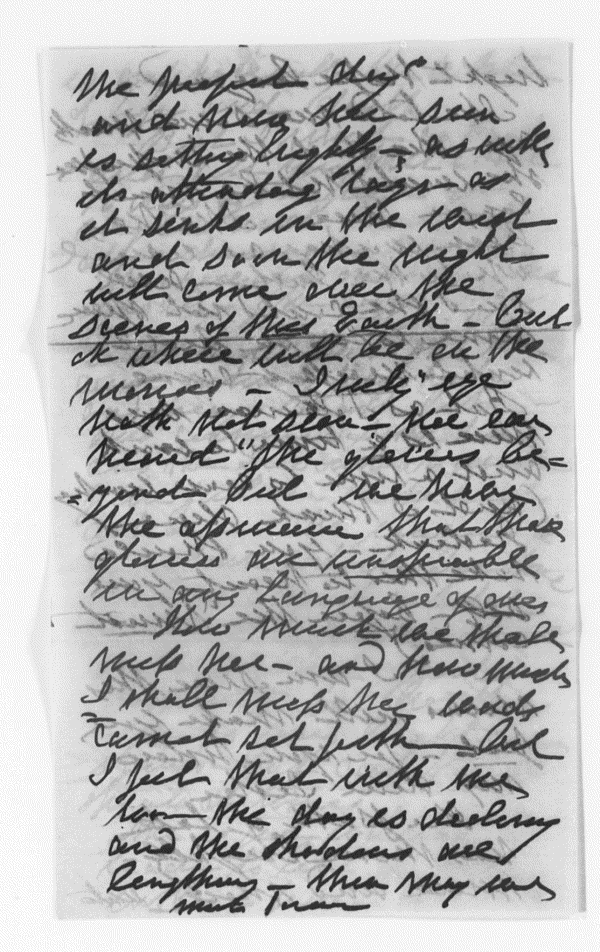 the perfect day"
and now her sun
is setting brightly – as with
its attending rays as
it sinks in the west
and soon the night
will come over the
scenes of this Earth – but
it where will be on the
– Truly "eye
hath not seen – nor ear
heard" the glories be=
=yond but we have
the assurance that these
glories are unspeakable
in any language of ours
How much we shall
miss her – and how much
I shall miss her words
cannot set forth – but
I feel that with me
too – the day is declining
and the shadows are
lengthening – then may we
meet